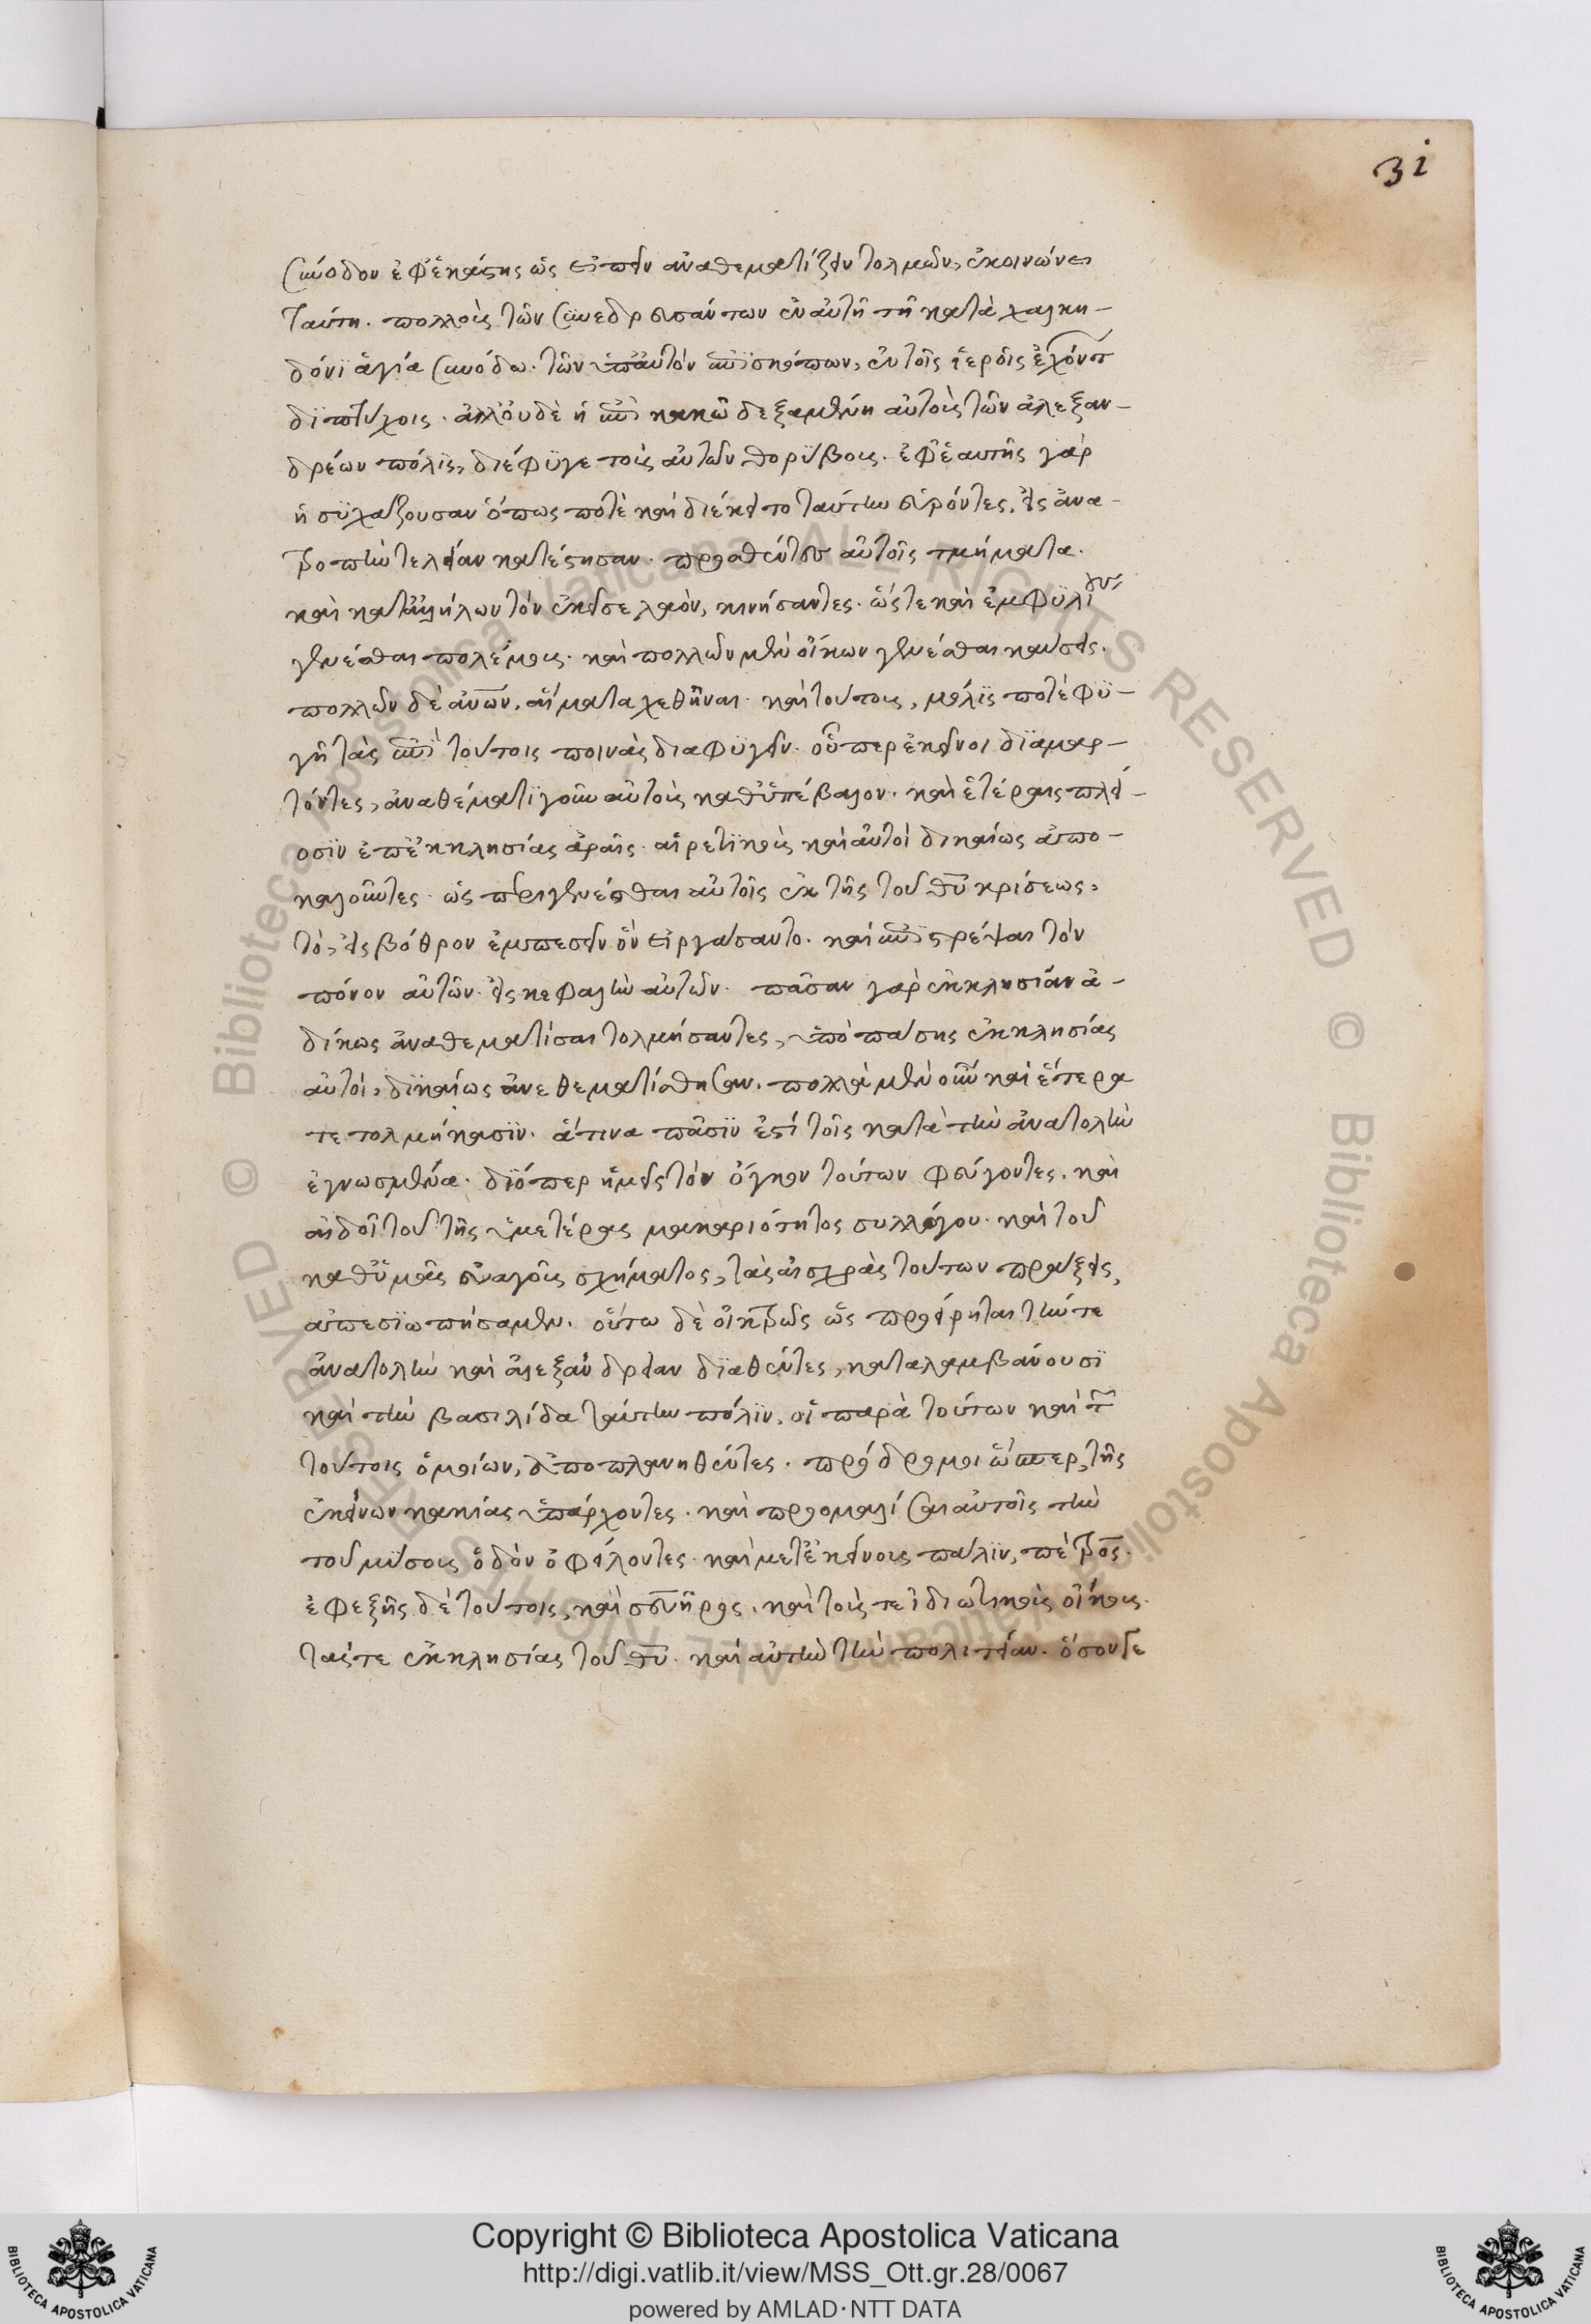 31
σύνοδον ἐφ' ἑκάστης ὡς εἰπεῖν ἀναθεματίζειν τολμῶν, ἐκοινώνει
ταύτη. πολλοὺς τῶν συνεδρευσάντων ἐν αὐτῆ τῆ κατὰ χαλκη-
δόνϊ ἁγία συνόδω. τῶν ὑπ' αὐτὸν ἐπισκόπων, ἐν τοῖς ἱεροῖς ἔχοντ
διπτύχοις. ἀλλ' οὐδὲ ἡ ἐπὶ κακῶ δεξαμένη αὐτοὺς τῶν ἀλεξαν-
δρέων πόλϊς, διέφυγε τοὺς αὐτῶν θορύβους. ἐφ' ἑαυτῆς γὰρ
ἡσϋχάζουσαν ὅπως ποτὲ καὶ διέκειτο ταύτην εὑρόντες, εἰς ἀνα-
τροπὴν τελείαν κατέστησαν. προσθέντες αὐτοῖς τμήματα.
καὶ κατ' ἀλλήλων τὸν ἐκεῖσε λαὸν, κινήσαντες. ὥς τε καὶ ἐμφϋλίους
γενέσθαι πολέμους. καὶ πολλῶν μὲν οἴκων γενέσθαι καύσεις.
πολλῶν δὲ ἀνων, αἵματα χεθῆναι. καὶ τούτους, μόλϊς ποτὲ φϋ-
γῆ τὰς ἐπὶ τούτοις ποινὰς διαφϋγεῖν. οὗπερ ἐκεῖνοι δϊαμαρ-
τόντες, ἀναθέματϊ γοῦν αὐτοὺς καθϋπέβαλον. καὶ ἑτέραις πλεί-
οσϊν ἐπ' ἐκκλησίας ἀραῖς. αἱρετϊκοὺς καὶ αὐτοὶ δικαίως ἀπο-
καλοῦντες. ὡς περιγενέσθαι αὐτοῖς ἐκ τῆς τοῦ θυ κρίσεως,
τὸ, εἰς βόθρον ἐμπεσεῖν ὃν εἰργάσαντο. καὶ ἐπιστρέψαι τὸν
πόνον αὐτῶν. εἰς κεφαλὴν αὐτῶν. πᾶσαν γὰρ ἐκκλησίαν ἀ-
δίκως ἀναθεματίσαι τολμήσαντες, ὑπὸ πάσης ἐκκλησίας
αὐτοὶ, δϊκαίως ἀνεθεματίσθησαν. πολλὰ μὲν οὖν καὶ ἕτερα
τετολμήκασϊν. ἅτινα πᾶσϊν ἐστὶ τοῖς κατὰ τὴν ἀνατολὴν
ἐγνωσμένα. δϊόπερ ἡμεῖς τὸν ὄγκον τούτων φεύγοντες. καὶ
αἰδοῖ τοῦ τῆς ὑμετέρας μακαριότητος συλλόγου. καὶ τοῦ
καθ' ὑμᾶς εὐαγοῦς σχήματος, τὰς αἰσχρὰς τούτων πράξεις,
ἀπεσϊωπήσαμεν. οὕτω δὲ οἰκτρῶς ὡς προείρηται τήν τε
ἀνατολὴν καὶ ἀλεξανδρειαν δϊαθέντες, καταλαμβάνουσϊ
καὶ τὴν βασιλίδα ταύτην πόλϊν. οἱ παρὰ τούτων καὶ τ
τούτοις ὁμοίων, ἀποπλανηθέντες. πρόδρομοι ὥσπερ, τῆς
ἐκείνων κακίας ὑπάρχοντες. καὶ προομαλίσαι αὐτοῖς τὴν
τοῦ μύσους ὁδὸν ὀφείλοντες. καὶ μετ' ἐκείνους πάλϊν, πέτρος.
ἐφεξῆς δὲ τούτοις, καὶ σευῆρος. καὶ τούς τε ἰδιωτικοὺς οἴκους.
τάς τε ἐκκλησίας τοῦ θυ. καὶ αὐτὴν τὴν πολιτείαν. ὅσον δε
Copyright © Biblioteca Apostolica Vaticana
http://digi.vatlib.it/view/MSS_Ott.gr.28/0067
powered by AMLAD·NTT DATA